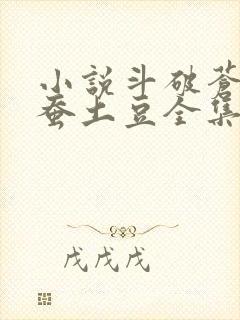 小説斗破蒼
蚕土豆全集
戊戊戊